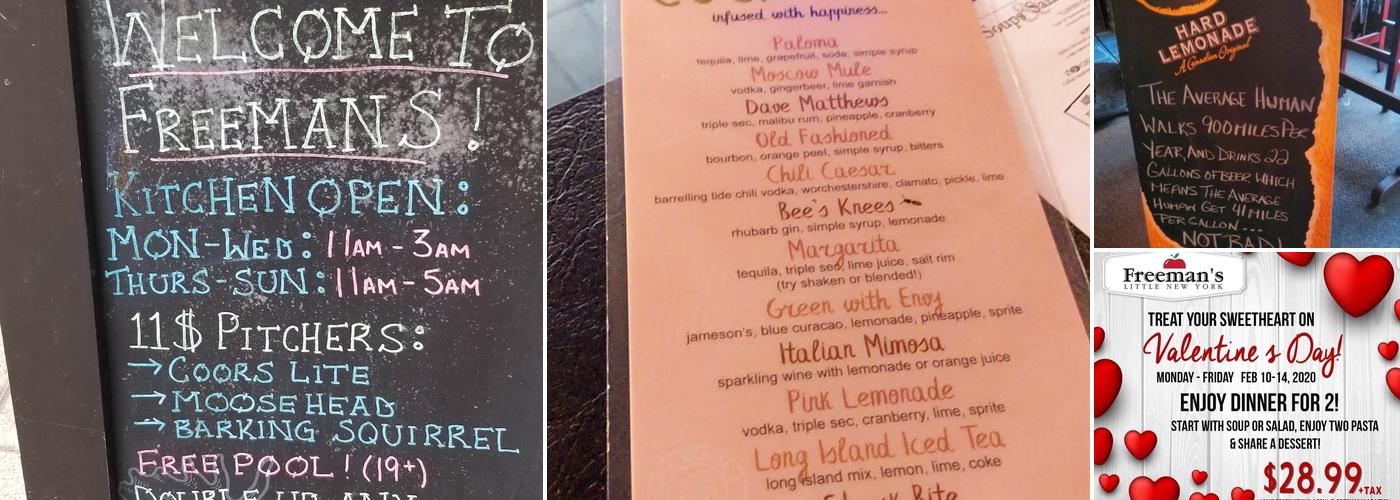 WELCOME TO
FREEMANS!
KITCHEN OPEN:
MON-WED: 11AM - 3AM
THURS-SUN: 11AM - 5AM
11$ PITCHERS:
→ COORS LITE
→ MOOSEHEAD
→ BARKING SQUIRREL
FREE POOL! (19+)
DOUBLE UP ANY
infused with happiness...
Paloma
tequila, lime, grapefruit, soda, simple syrup
Moscow Mule
vodka, gingerbeer, lime garnish
Dave Matthews
triple sec, malibu rum, pineapple, cranberry
Old Fashioned
bourbon, orange peel, simple syrup, bitters
Chili Caesar
barrelling tide chili vodka, worchestershire, clamato, pickle, lime
Bee's Knees
rhubarb gin, simple syrup, lemonade
Margarita
tequila, triple sec, lime juice, salt rim
(try shaken or blended!)
Green with Envy
jameson's, blue curacao, lemonade, pineapple, sprite
Italian Mimosa
sparkling wine with lemonade or orange juice
Pink Lemonade
vodka, triple sec, cranberry, lime, sprite
Long Island Iced Tea
long island mix, lemon, lime, coke
Soup & Sal
HARD
LEMONADE
A Canadian Original
THE AVERAGE HUMAN
WALKS 900 MILES PER
YEAR, AND DRINKS 22
GALLONS OF BEER WHICH
MEANS THE AVERAGE
HUMAN GET 41 MILES
PER GALLON...
NOT BAD!
Freeman's
LITTLE NEW YORK
TREAT YOUR SWEETHEART ON
Valentine's Day!
MONDAY - FRIDAY FEB 10-14, 2020
ENJOY DINNER FOR 2!
START WITH SOUP OR SALAD, ENJOY TWO PASTA
& SHARE A DESSERT!
$28.99 +TAX